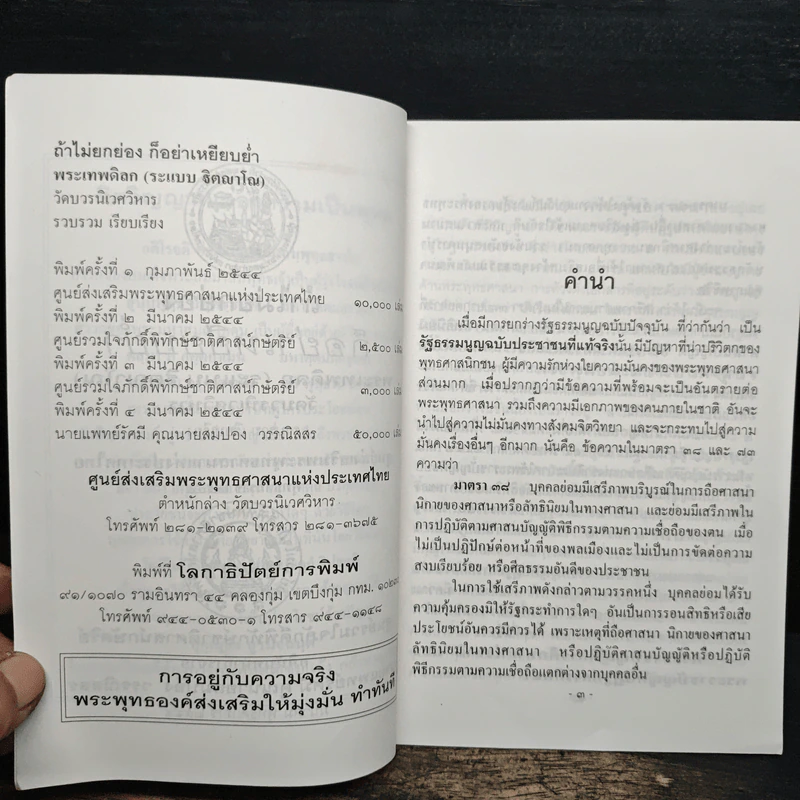 ถ้าไม่ยกย่อง ก็อย่าเหยียบย่ำ
พระเทพดิลก (ระแบบ ฐิตญาโณ)
วัดบวรนิเวศวิหาร
รวบรวม เรียบเรียง
พิมพ์ครั้งที่ ๑ กุมภาพันธ์ ๒๕๔๔
ศูนย์ส่งเสริมพระพุทธศาสนาแห่งประเทศไทย ๑๐,๐๐๐ เล่ม
พิมพ์ครั้งที่ ๒ มีนาคม ๒๕๔๔
ศูนย์รวมใจภักดิ์พิทักษ์ชาติศาสน์กษัตริย์ ๒,๕๐๐ เล่ม
พิมพ์ครั้งที่ ๓ มีนาคม ๒๕๔๔
ศูนย์รวมใจภักดิ์พิทักษ์ชาติศาสน์กษัตริย์ ๓,๐๐๐ เล่ม
พิมพ์ครั้งที่ ๔ มีนาคม ๒๕๔๔
นายแพทย์รัศมี คุณนายสมปอง วรรณิสสร ๕๐,๐๐๐ เล่ม
ศูนย์ส่งเสริมพระพุทธศาสนาแห่งประเทศไทย
ตำหนักล่าง วัดบวรนิเวศวิหาร
โทรศัพท์ ๒๘๑-๒๑๓๙ โทรสาร ๒๘๑-๓๖๗๕
พิมพ์ที่ โลกาธิปัตย์การพิมพ์
๙๑/๑๐๗๐ รามอินทรา ๔๔ คลองกุ่ม เขตบึงกุ่ม กทม.
โทรศัพท์ ๙๔๔-๐๕๓๐-๑ โทรสาร ๙๔๔-๑๑๔๘
การอยู่กับความจริง
พระพุทธองค์ส่งเสริมให้มุ่งมั่น ทำทันที
คำนำ
เมื่อมีการยกร่างรัฐธรรมนูญฉบับปัจจุบัน ที่ว่ากันว่า เป็น
รัฐธรรมนูญฉบับประชาชนที่แท้จริงนั้น มีปัญหาที่น่าปริวิตกของ
พุทธศาสนิกชน ผู้มีความรักห่วงใยความมั่นคงของพระพุทธศาสนา
ส่วนมาก เมื่อปรากฏว่ามีข้อความที่พร้อมจะเป็นอันตรายต่อ
พระพุทธศาสนา รวมถึงความมีเอกภาพของคนภายในชาติ อันจะ
นำไปสู่ความไม่มั่นคงทางสังคมจิตวิทยา และจะกระทบไปสู่ความ
มั่นคงเรื่องอื่นๆ อีกมาก นั่นคือ ข้อความในมาตรา ๓๘ และ ๗๓
ความว่า
มาตรา ๓๘ บุคคลย่อมมีเสรีภาพบริบูรณ์ในการถือศาสนา
นิกายของศาสนาหรือลัทธินิยมในทางศาสนา และย่อมมีเสรีภาพใน
การปฏิบัติตามศาสนบัญญัติพิธีกรรมตามความเชื่อถือของตน เมื่อ
ไม่เป็นปฏิปักษ์ต่อหน้าที่ของพลเมืองและไม่เป็นการขัดต่อความ
สงบเรียบร้อย หรือศีลธรรมอันดีของประชาชน
ในการใช้เสรีภาพดังกล่าวตามวรรคหนึ่ง บุคคลย่อมได้รับ
ความคุ้มครองมิให้รัฐกระทำการใดๆ อันเป็นการรอนสิทธิหรือเสีย
ประโยชน์อันควรมีควรได้ เพราะเหตุที่ถือศาสนา นิกายของศาสนา
ลัทธินิยมในทางศาสนา หรือปฏิบัติศาสนบัญญัติหรือปฏิบัติ
พิธีกรรมตามความเชื่อถือแตกต่างจากบุคคลอื่น
- ๓ -